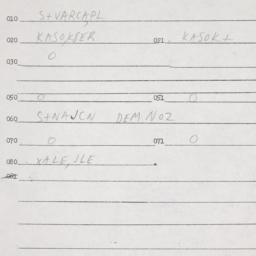 010 S+VARCAPL
020 KASOKFER 021 KASOK L
030 0
050 0 051 0
060 S+NAJCN DEM NO2
070 0 071 0
080 XALE, JLE
081